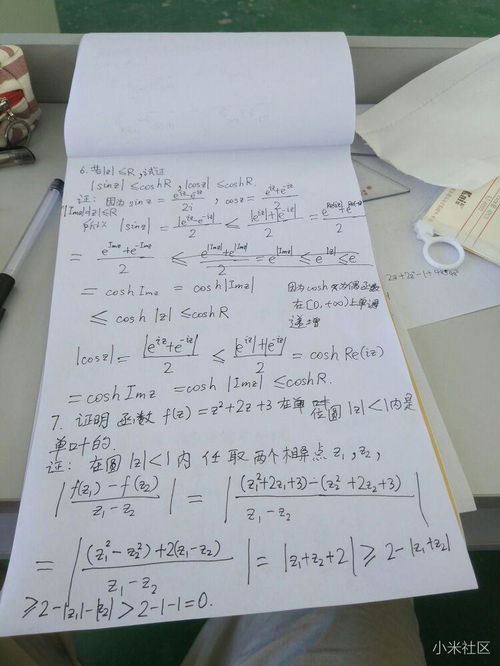 6. 若|z|≤R, 试证
|sinz|≤coshR, |cosz|≤coshR.
证: 因为 sinz = (e^{iz}-e^{-iz})/2i, cosz = (e^{iz}+e^{-iz})/2
|Imz|≤|z|≤R
所以 |sinz| = |e^{iz}-e^{-iz}|/2 ≤ (|e^{iz}|+|e^{-iz}|)/2 =
= (e^{Imz}+e^{-Imz})/2
= coshImz = cosh|Imz| 因为cosh x为偶函数
≤ cosh|z| ≤coshR 在[0,+∞)上单调
递增
|cosz| = |e^{iz}+e^{-iz}|/2 ≤ (|e^{iz}|+|e^{-iz}|)/2 = cosh Re(iz)
= coshImz = cosh|Imz| ≤coshR.
7. 证明函数 f(z)=z²+2z+3在单位圆|z|<1内是
单叶的.
证: 在圆|z|<1内任取两个相异点z₁, z₂,
|(f(z₁)-f(z₂))/(z₁-z₂)| = |((z₁²+2z₁+3)-(z₂²+2z₂+3))/(z₁-z₂)|
= |((z₁²-z₂²)+2(z₁-z₂))/(z₁-z₂)| = |z₁+z₂+2| ≥ 2-|z₁+z₂|
≥2-|z₁|-|z₂|>2-1-1=0.
小米社区